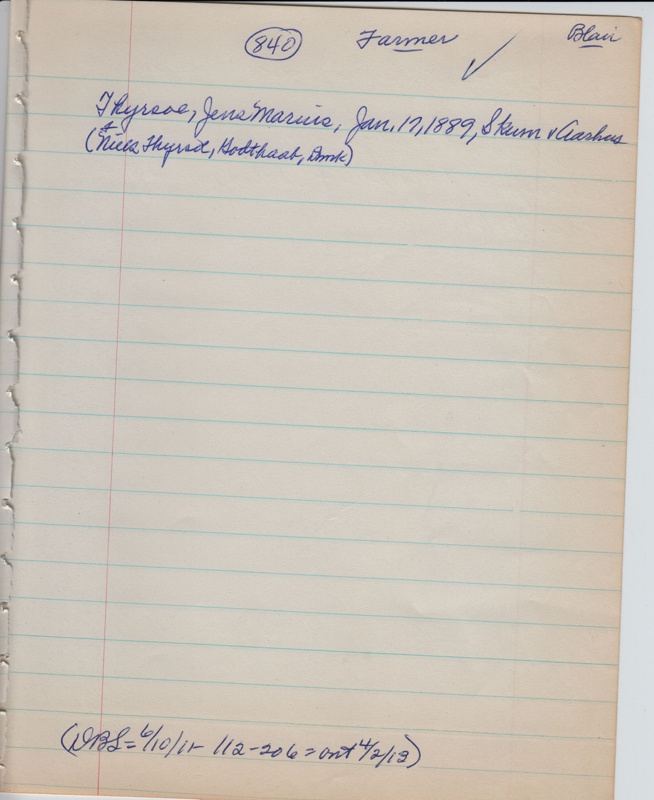 840 Farmer Blair
Thyrsoe, Jens Marius, Jan. 17, 1889, Skum v Aarhus
(Niels Thyrsd, Godthaab, Dmk)
(DBS= 6/10/11- 112-206 = ont 4/2/12)